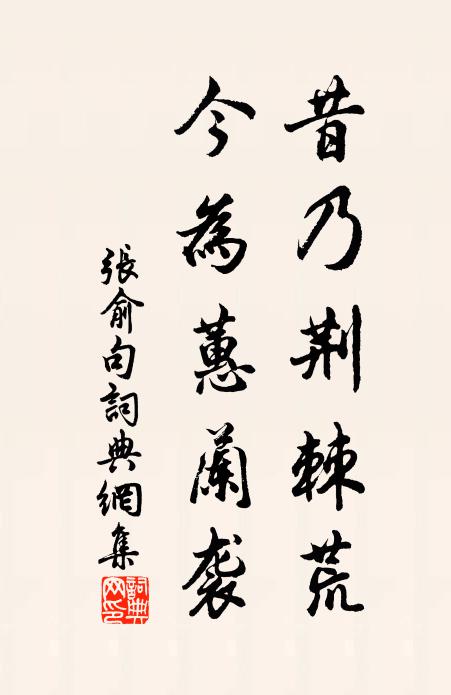 昔乃荆棘荒
今為蕙蘭袭
張俞句詞典網集
詞典網印